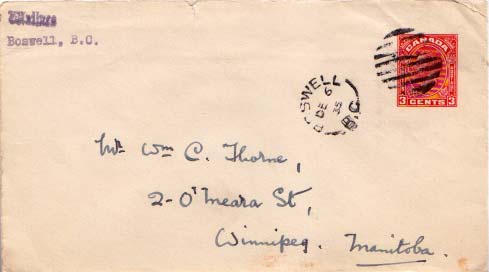 Boswell, B.C.
CANADA
3 CENTS 3
BOSWELL
DE 6
35
B.C
Mr Wm C. Thorne,
2-O'Meara St,
Winnipeg. Manitoba.